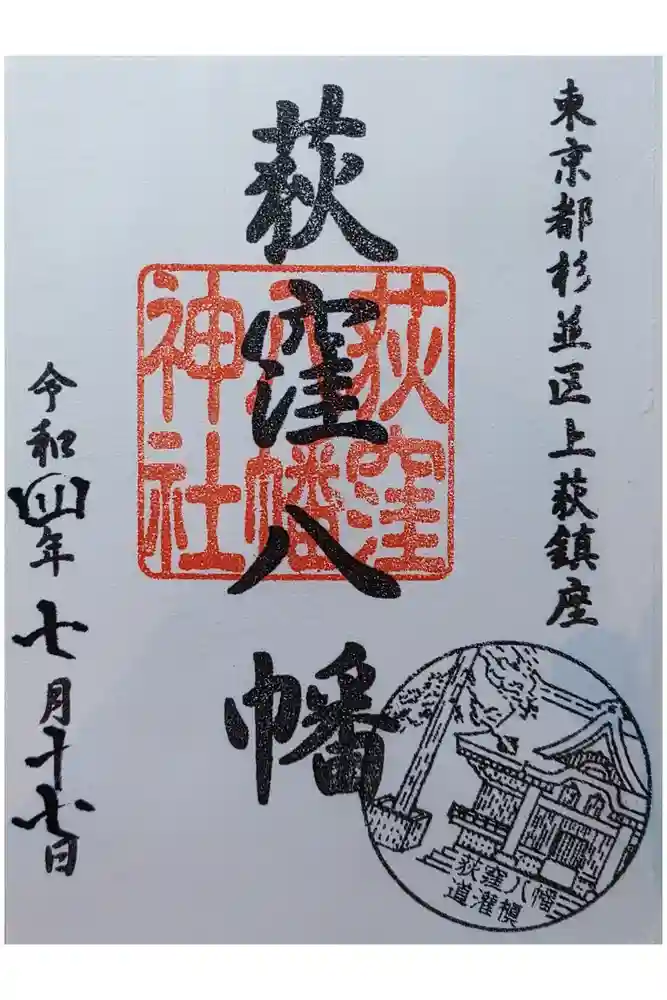 東京都杉並区上荻鎮座
荻窪八幡
荻窪
八幡
神社
令和四年七月十七日
荻窪八幡
道灌槇